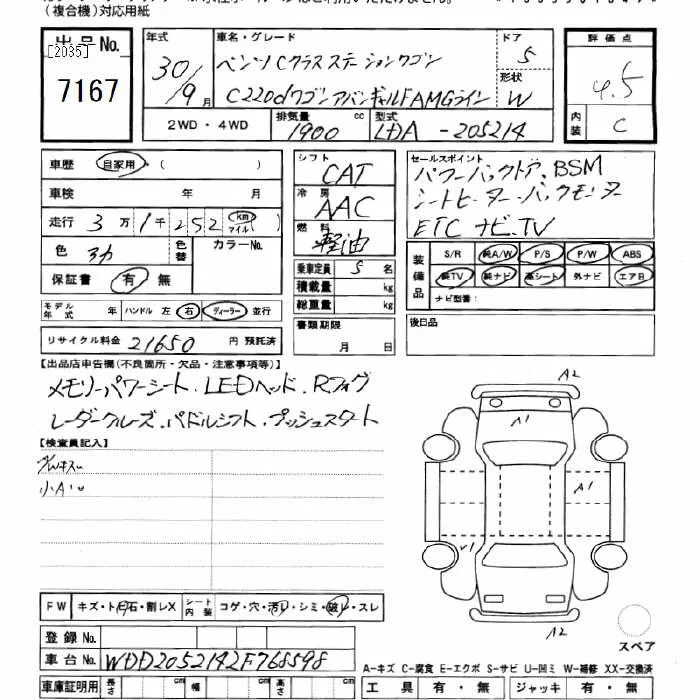 (複合機)対応用紙
出品No.
[2035]
7167
年式 30/9月
車名・グレード ベンツCクラスステーションワゴン
C220dワゴンアバンギャルドAMGライン
ドア 5
形状 W
2WD・4WD
排気量 1900 cc
型式 LDA-205214
評価点 4.5
内装 C
車歴 自家用・( )
車検 年 月
走行 3万1千252 km マイル ( )
色
色替
カラーNo.
保証書 有・無
モデル年式 年 ハンドル 左 右 ディーラー・並行
リサイクル料金 21650 円 預託済
シフト CAT
冷房 AAC
燃料 軽油
乗車定員 5 名
積載量 kg
総重量 kg
書類期限
月 日
セールスポイント
パワーバックドア、BSM
シートヒーター・バックモニター
ETC ナビ、TV
装備品
S/R 純A/W P/S P/W ABS
純TV 純ナビ 革シート 外ナビ エアB
ナビ型番:
後日品
【出品店申告欄(不良箇所・欠品・注意事項等)】
メモリーパワーシート、LEDヘッド、Rフォグ
レーダークルーズ、パドルシフト、プッシュスタート
【検査員記入】
小A
A2
A1
A1
A2
FW キズ・ト・石・割レX シート内装 コゲ・穴・汚レ・シミ・破レ・スレ
登録No.
車台No. WDD2052142F768598
車庫証明用 長さ cm 幅 cm 高さ cm
スペア
A-キズ C-腐食 E-エクボ S-サビ U-凹ミ W-補修 XX-交換済
工具 有・無 ジャッキ 有・無